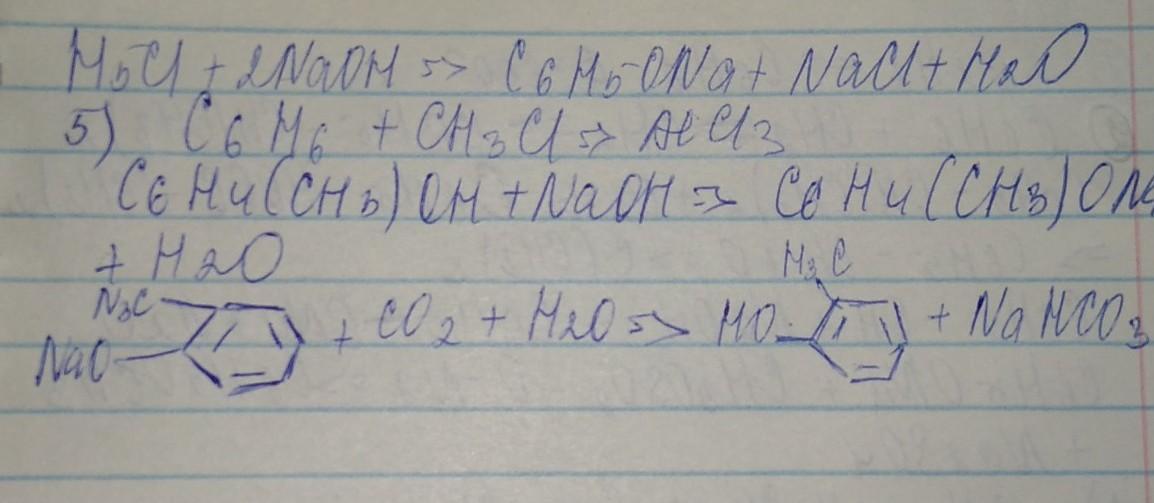 H5Cl + 2NaOH => C6H5-ONa + NaCl + H2O
5) C6H6 + CH3Cl => AlCl3
C6H4(CH3)OH + NaOH => C6H4(CH3)ONa
+ H2O
H3C
N3C
NaO + CO2 + H2O => HO + NaHCO3